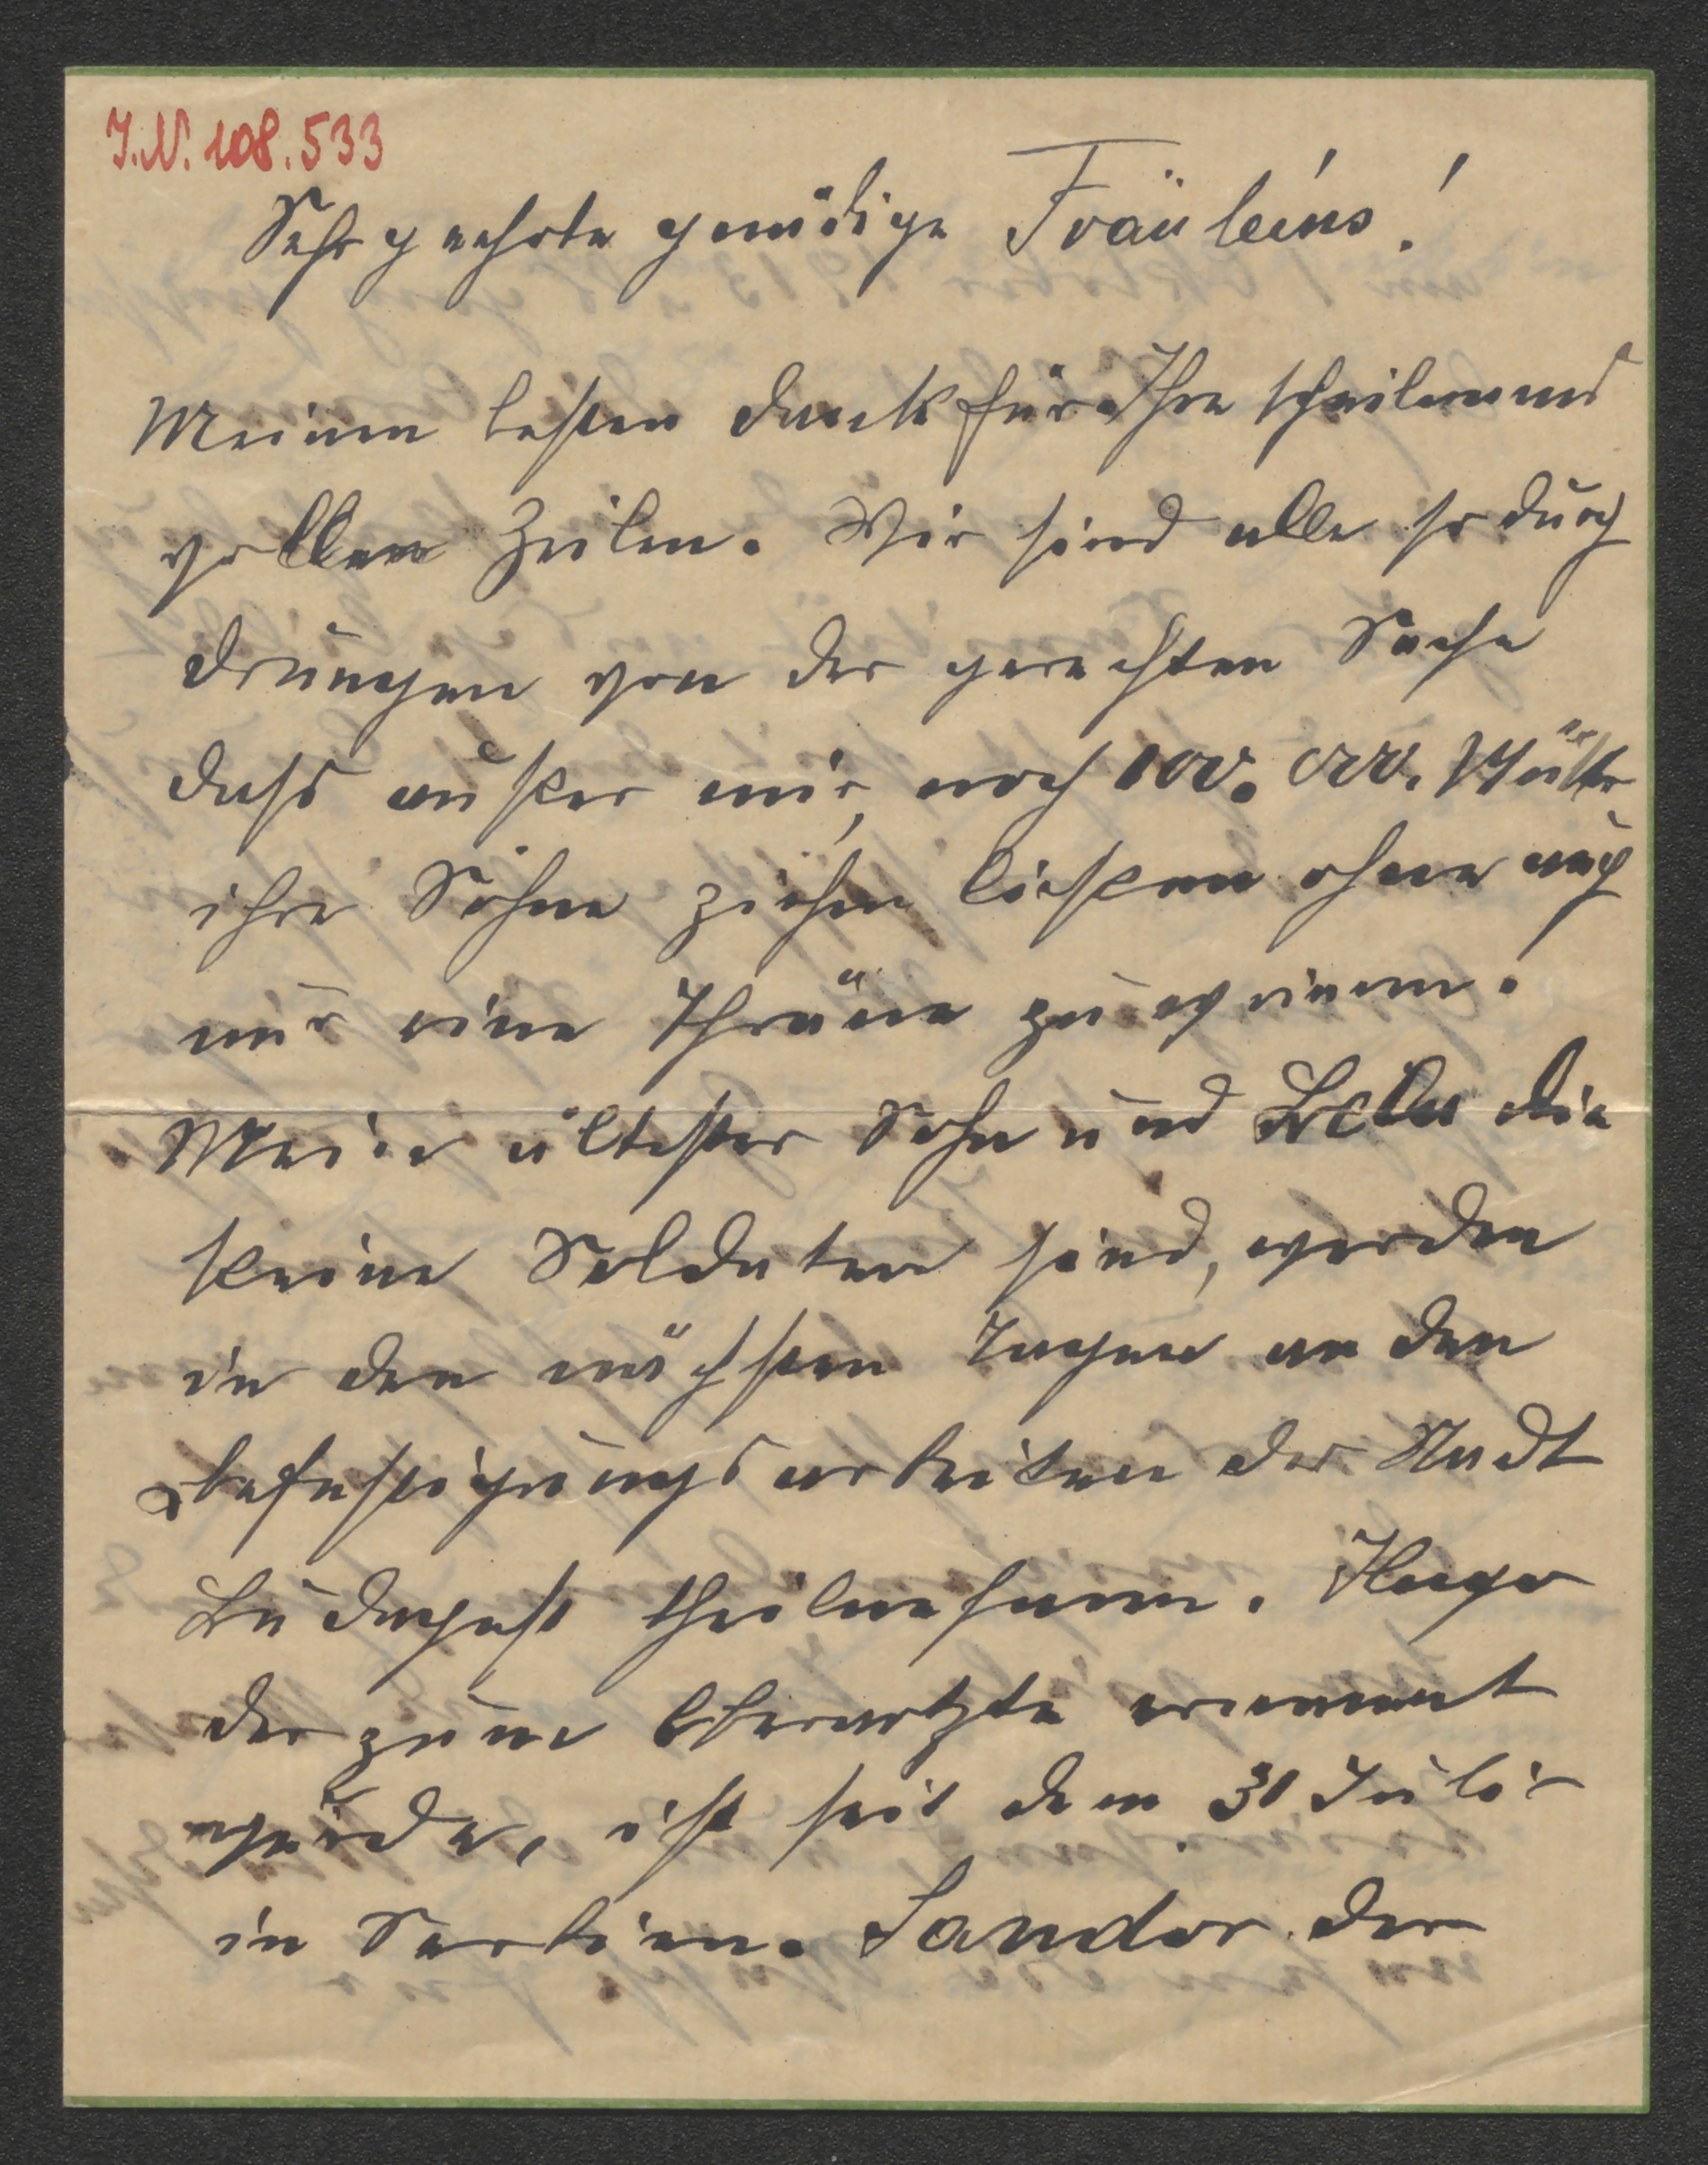 I.N. 108.533
Sehr geehrte gnädige Fräuleins!
Meinen besten Dank für Ihre theilnams
vollen Zeilen. Wir sind alle so durch
drungen von der gerechten Sache
dass außer mir, noch 100. 000. Mütter
ihre Söhne ziehen liessen ohne auch
nur eine Thräne zu weinen!
Mein ältester Sohn und Bela die
keine Soldaten sind, werden
in den nächsten Tagen an den
Befestigungsarbeiten der Stadt
Budapest theilnehmen. Hugo
der zum Oberarzte ernannt
wurde, ist seit dem 31 Juli
in Serbien. Sandor der